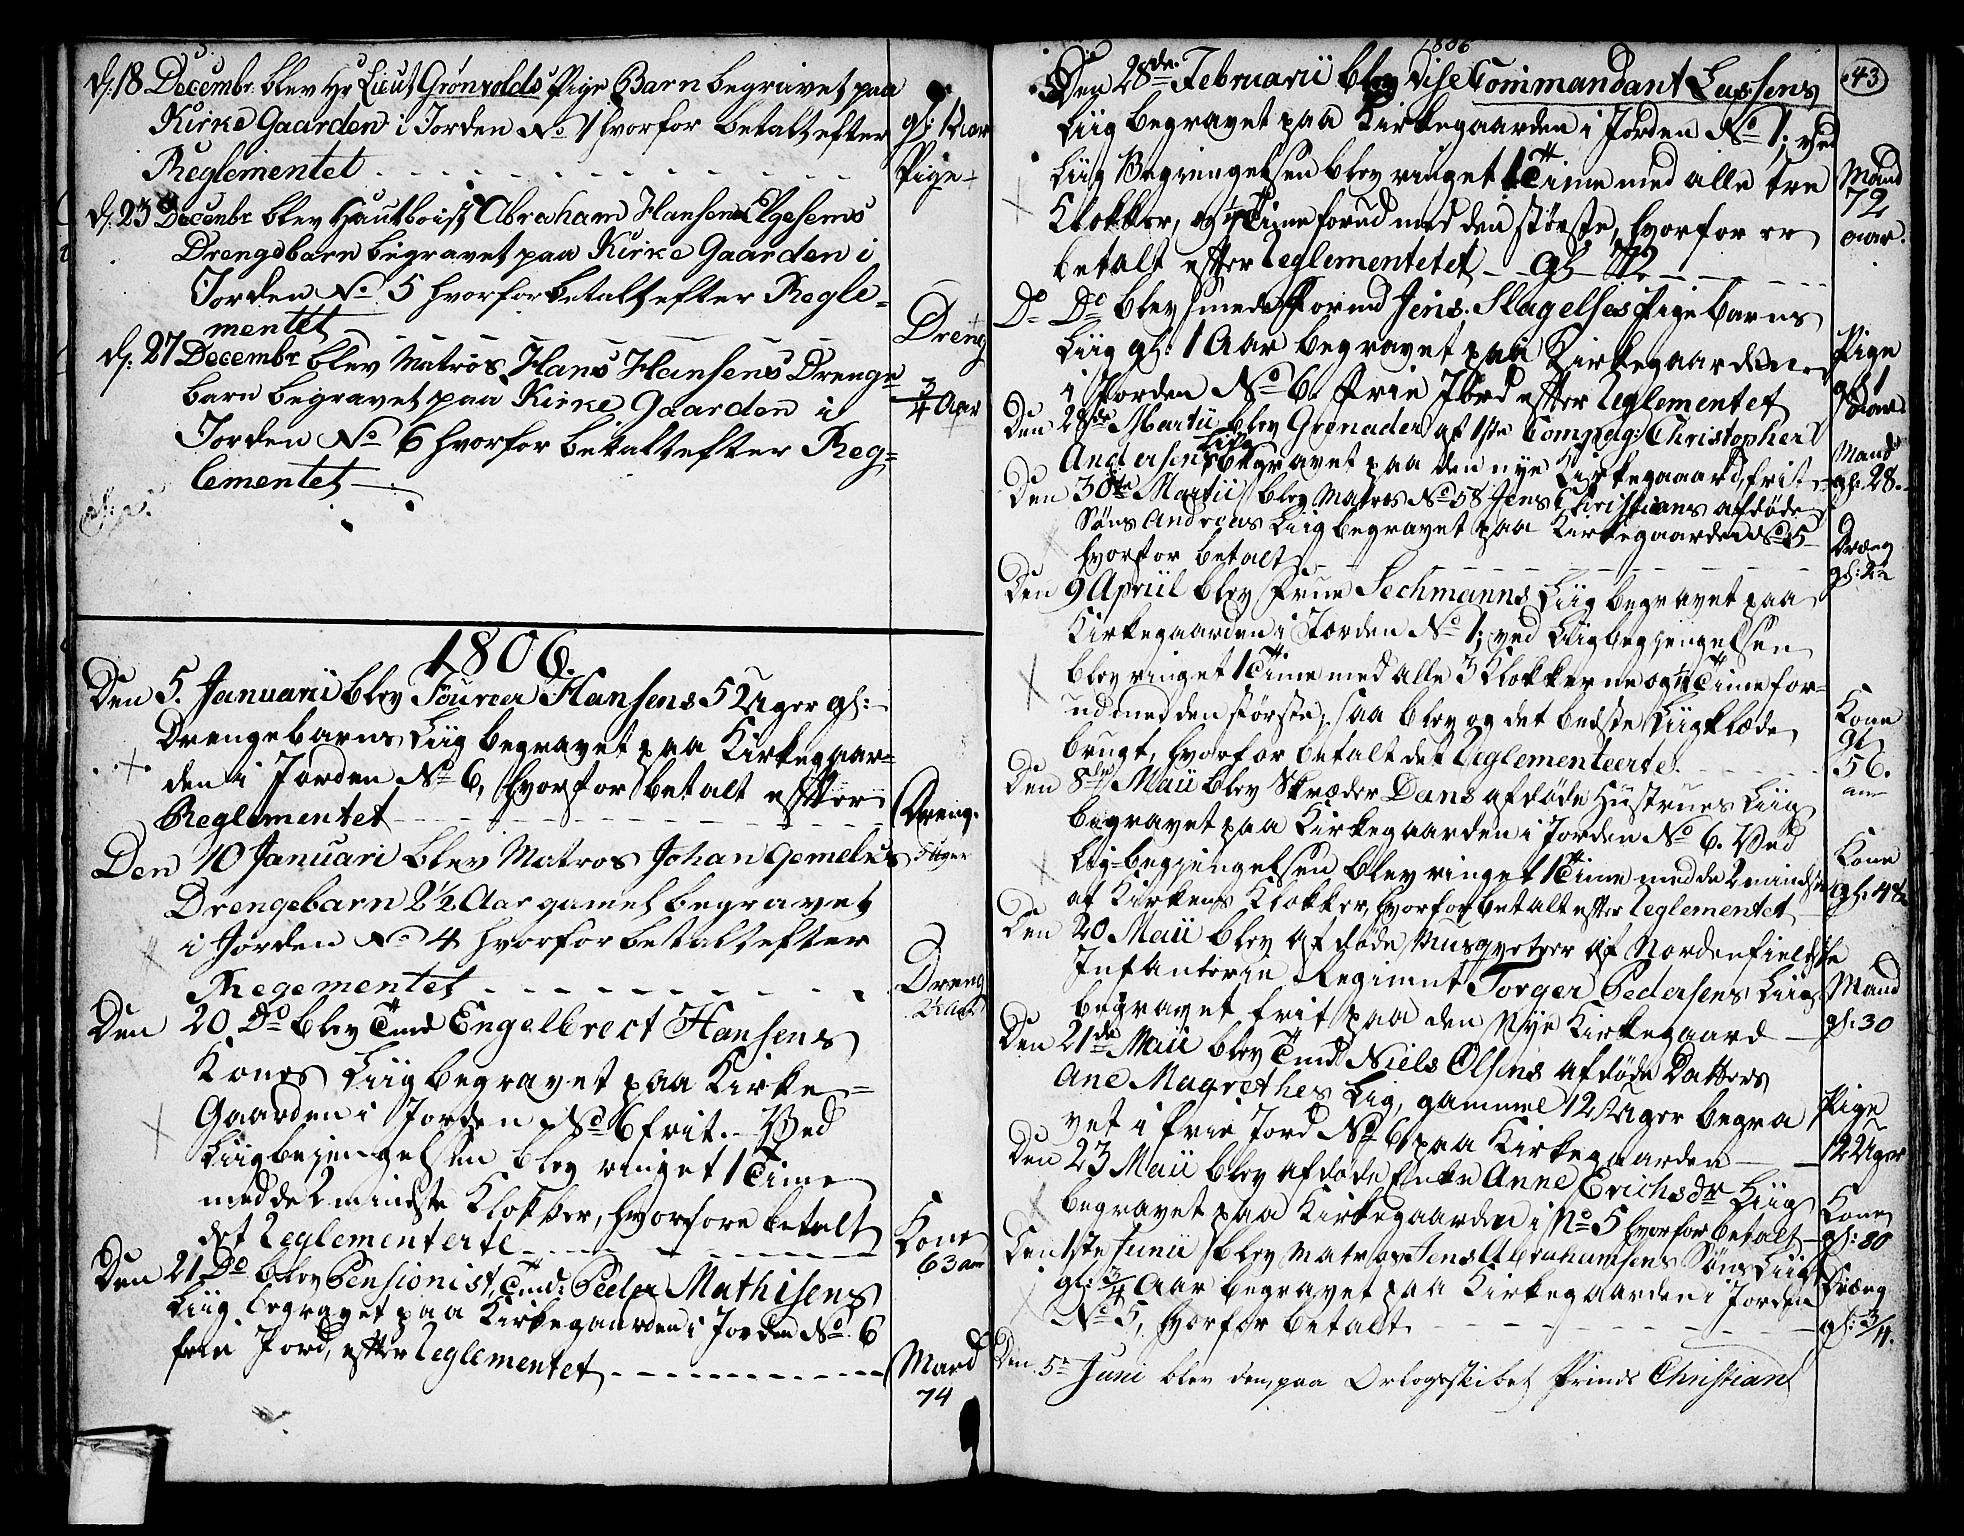 d: 18 Decembr. blev Hr Lieut Grönvolds Pige Barn begravet paa
Kirke Gaarden i Jorden No 1 hvorfor betalt efter
Reglementet
gl: 1 Aar
Pige
d: 23 Decembr blev Hautboist Abraham Hansen Elgesems
Drengebarn begravet paa Kirke Gaarden i
Jorden No 5 hvorfor betalt efter Regle-
mentet
Dreng
d: 27 Decembr blev Matros Hans Hansens Drenge
barn begravet paa Kirke Gaarden i
Jorden No 6 hvorfor betalt efter Reg=
lementet
3/4 Aar
1806.
Den 5. Januarii blev Fourier Hansens 5 Uger gl:
Drengebarns Liig begravet paa Kirkegaar=
den i Jorden No 6, hvorfor betalt effter
Reglementet
Dreng.
5 Uger
Den 10 Januari blev Matros Johan Gemelius
Drengebarn 2½ Aar gamel begravet
i Jorden No 4 hvorfor betalt efter
Regementet
Dreng
2½ Aar
Den 20 Do blev Tmd Engelbrect Hansens
Kones Liig begravet paa Kirke=
Gaarden i Jorden No 6 frit. Ved
Liigbejengelsen blev ringet 1 Time
med de 2 mindste Klokker, hvorfore betalt
det Reglementerte
Kone
63 aar
Den 21 Do blev Pensionist, Tmd: Peder Mathisens
Liig begravet paa Kirkegaarden i Jorden No 6
frie Jord, effter Reglementet
Mand
74
1806
43
Den 28de Februarii blev Vise Commandant Lassens
Liig begravet paa Kirkegaarden i Jorden No 1; ved
Liig Begiengelsen blev ringet 1 Time med alle tre
Klokker, og ¼ Time forud med den störste, hvorfor er
betalt effter Reglementetet gl 72
Mand
72
aar.
Do Do blev Smede Formd Jens Slagelses Pigebarns
Liig gl: 1 Aar begravet paa Kirkegaarden
i Jorden No 6. Frie Jord effter Reglementet
Pige
gl 1
Aar
Den 28de Martii blev Grenader af 1ste Compag: Christopher
Andersens Liig begravet paa den nye Kirkegaard, frit
Mand
gl: 28.
Den 30te Martii blev Matros No 58 Jens Christians afdöde
Söns Andreas Liig begravet paa Kirkegaarden No 5
hvorfor betalt
Dreng
gl: 2
Den 9 April blev Frue Sechmanns Liig begravet paa
Kirkegaarden i Jorden No 1; ved Liigbegjengelsen
blev ringet 1 Time med alle 3 Klokkerne og ¼ Time for-
ud med den störste; saa blev og det bedste Liigklæde
brugt, hvorfor betalt det Reglementeerte
Kone
gl
56.
aar
Den 8de Maii blev Skræder Dans afdöde Hustrues Liig
begravet paa Kirkegaarden i Jorden No 6. Ved
Liig=begjengelsen blev ringet 1 Time med de 2 mindste
af Kirkens Klokker, hvorfor betalt effter Reglementet
Kone
Den 20 Maii blev afdöde Musqveteer af Nordenfieldske
Infanterie Regiment Torger Pedersens Liig
begravet frit paa den Nye Kirkegaard
Mand
gl: 30
Den 21de Maii blev Tmd Niels Olsens afdöde Datters
Ane Magrethes Lig, gammel 12 Uger begra
vet i frie Jord No 6 paa Kirkegaarden
Pige
12 Uger
Den 23 Maii blev afdöde Enke Anne Erichsdr Liig
begravet paa Kirkegaarden i No 5 hvorfor betalt
Kone
gl: 80
Den 1ste Junii blev Matros Jens Abrahamsens Söns Liig
gl: 3/4 Aar begravet paa Kirkegaarden i Jorden
No 5, hvorfor betalt
Dreng
gl: 3/4.
Den 5te Juni blev den, paa Orlogsskibet Prinds Christian